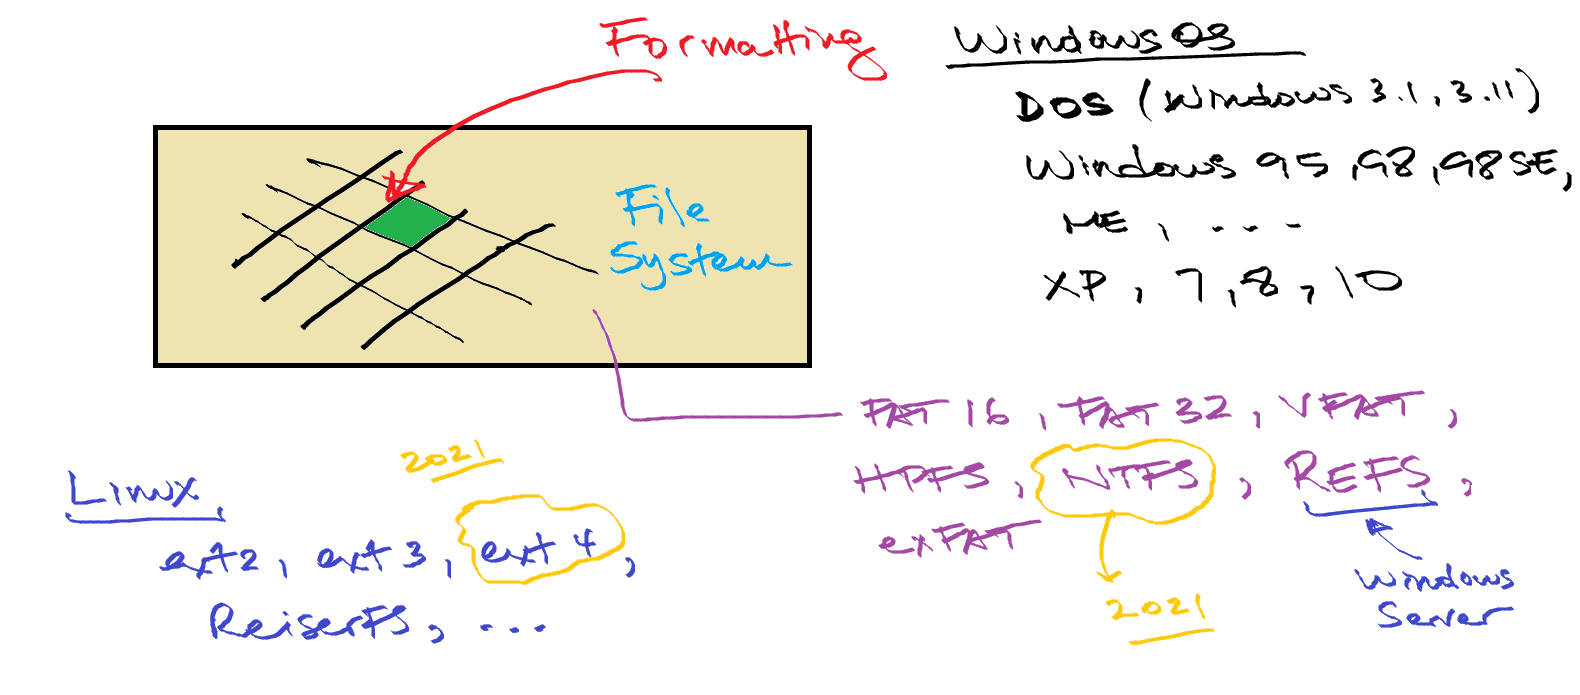 Formatting
Windows OS
DOS (Windows 3.1, 3.11)
Windows 95, 98, 98SE,
ME, ...
XP, 7, 8, 10
File
System
FAT 16, FAT 32, VFAT,
HPFS, NTFS, REFS,
exFAT
2021
Windows
Server
2021
Linux
ext2, ext3, ext4,
ReiserFS, ...